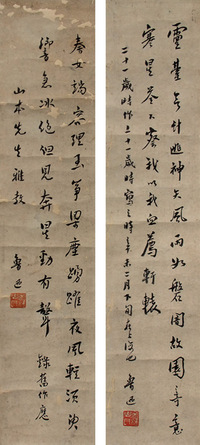 靈臺無計逃神矢風雨如磐闇故園寄意
寒星荃不察我以我血薦軒轅
二十一歲時作五十一歲時寫之時辛未二月下旬在上海也 魯迅
秦女端容理玉箏梁塵踊躍夜風輕須臾
響急冰弦絕但見奔星勁有聲 錄舊作應
山本先生雅教 魯迅